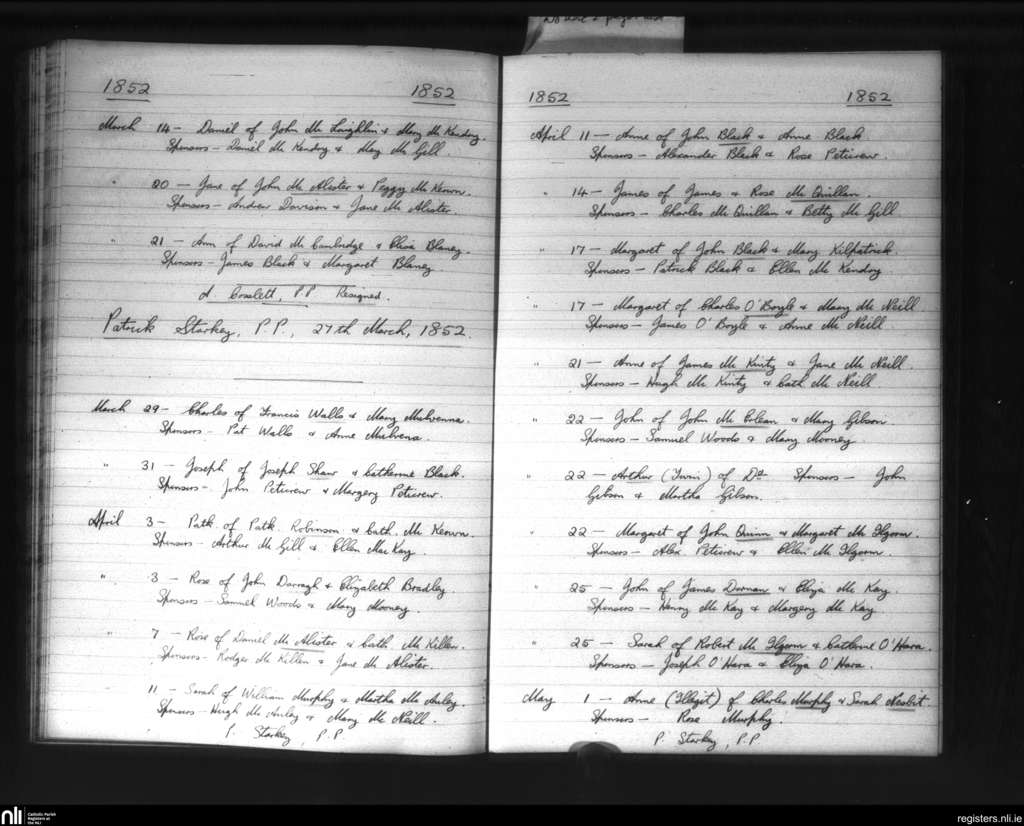 1852 1852
March 14 - Daniel of John Mc Laughlin & Mary Mc Kendry.
Sponsors - Daniel Mc Kendry & Mary Mc Gill.
" 20 - Jane of John Mc Alister & Peggy Mc Keown.
Sponsors - Andrew Davison & Jane Mc Alister.
" 21 - Ann of David Mc Cambridge & Eliza Blaney.
Sponsors - James Black & Margaret Blaney
A. Cosslett, P.P Resigned.
Patrick Starkey, P.P., 27th March, 1852.
March 29 - Charles of Francis Walls & Mary Mulvenna.
Sponsors - Pat Walls & Anne Mulvena.
" 31 - Joseph of Joseph Shaw & Catherine Black.
Sponsors - John Peticrew & Margery Peticrew.
April 3 - Patk. of Patk. Robinson & Cath. Mc Keown.
Sponsors - Arthur Mc Gill & Ellen MacKay.
" 3 - Rose of John Darragh & Elizabeth Bradley.
Sponsors - Samuel Woods & Mary Mooney
" 7 - Rose of Daniel Mc Alister & Cath. Mc Killen.
Sponsors - Rodger Mc Killen & Jane Mc Alister.
11 - Sarah of William Murphy & Martha Mc Auley.
Sponsors - Hugh Mc Auley & Mary Mc Neill.
P. Starkey, P.P.
1852 1852
April 11 - Anne of John Black & Anne Black
Sponsors - Alexander Black & Rose Peticrew.
" 14 - James of James & Rose Mc Quillan.
Sponsors - Charles Mc Quillan & Betty Mc Gill
" 17 - Margaret of John Black & Mary Kilpatrick.
Sponsors - Patrick Black & Ellen Mc Kendry
" 17 - Margaret of Charles O'Boyle & Mary Mc Neill
Sponsors - James O'Boyle & Anne Mc Neill.
" 21 - Anne of James Mc Kinty & Jane Mc Neill.
Sponsors - Hugh Mc Kinty & Cath Mc Neill
" 22 - John of John Mc Erlean & Mary Gibson
Sponsors - Samuel Woods & Mary Mooney
" 22 - Arthur (Twin) of Do. Sponsors - John
Gibson & Martha Gibson.
" 22 - Margaret of John Quinn & Margaret Mc Ilgorm.
Sponsors - Alex Peticrew & Ellen Mc Ilgorm.
" 25 - John of James Dornan & Eliza Mc Kay.
Sponsors - Henry Mc Kay & Margery Mc Kay
" 25 - Sarah of Robert Mc Ilgorm & Catherine O'Hara.
Sponsors - Joseph O'Hara & Eliza O'Hara.
May 1 - Anne (Illegit) of Charles Murphy & Sarah Nesbit.
Sponsors - Rose Murphy
P. Starkey, P.P
nli Catholic Parish
Registers at
the NLI
registers.nli.ie